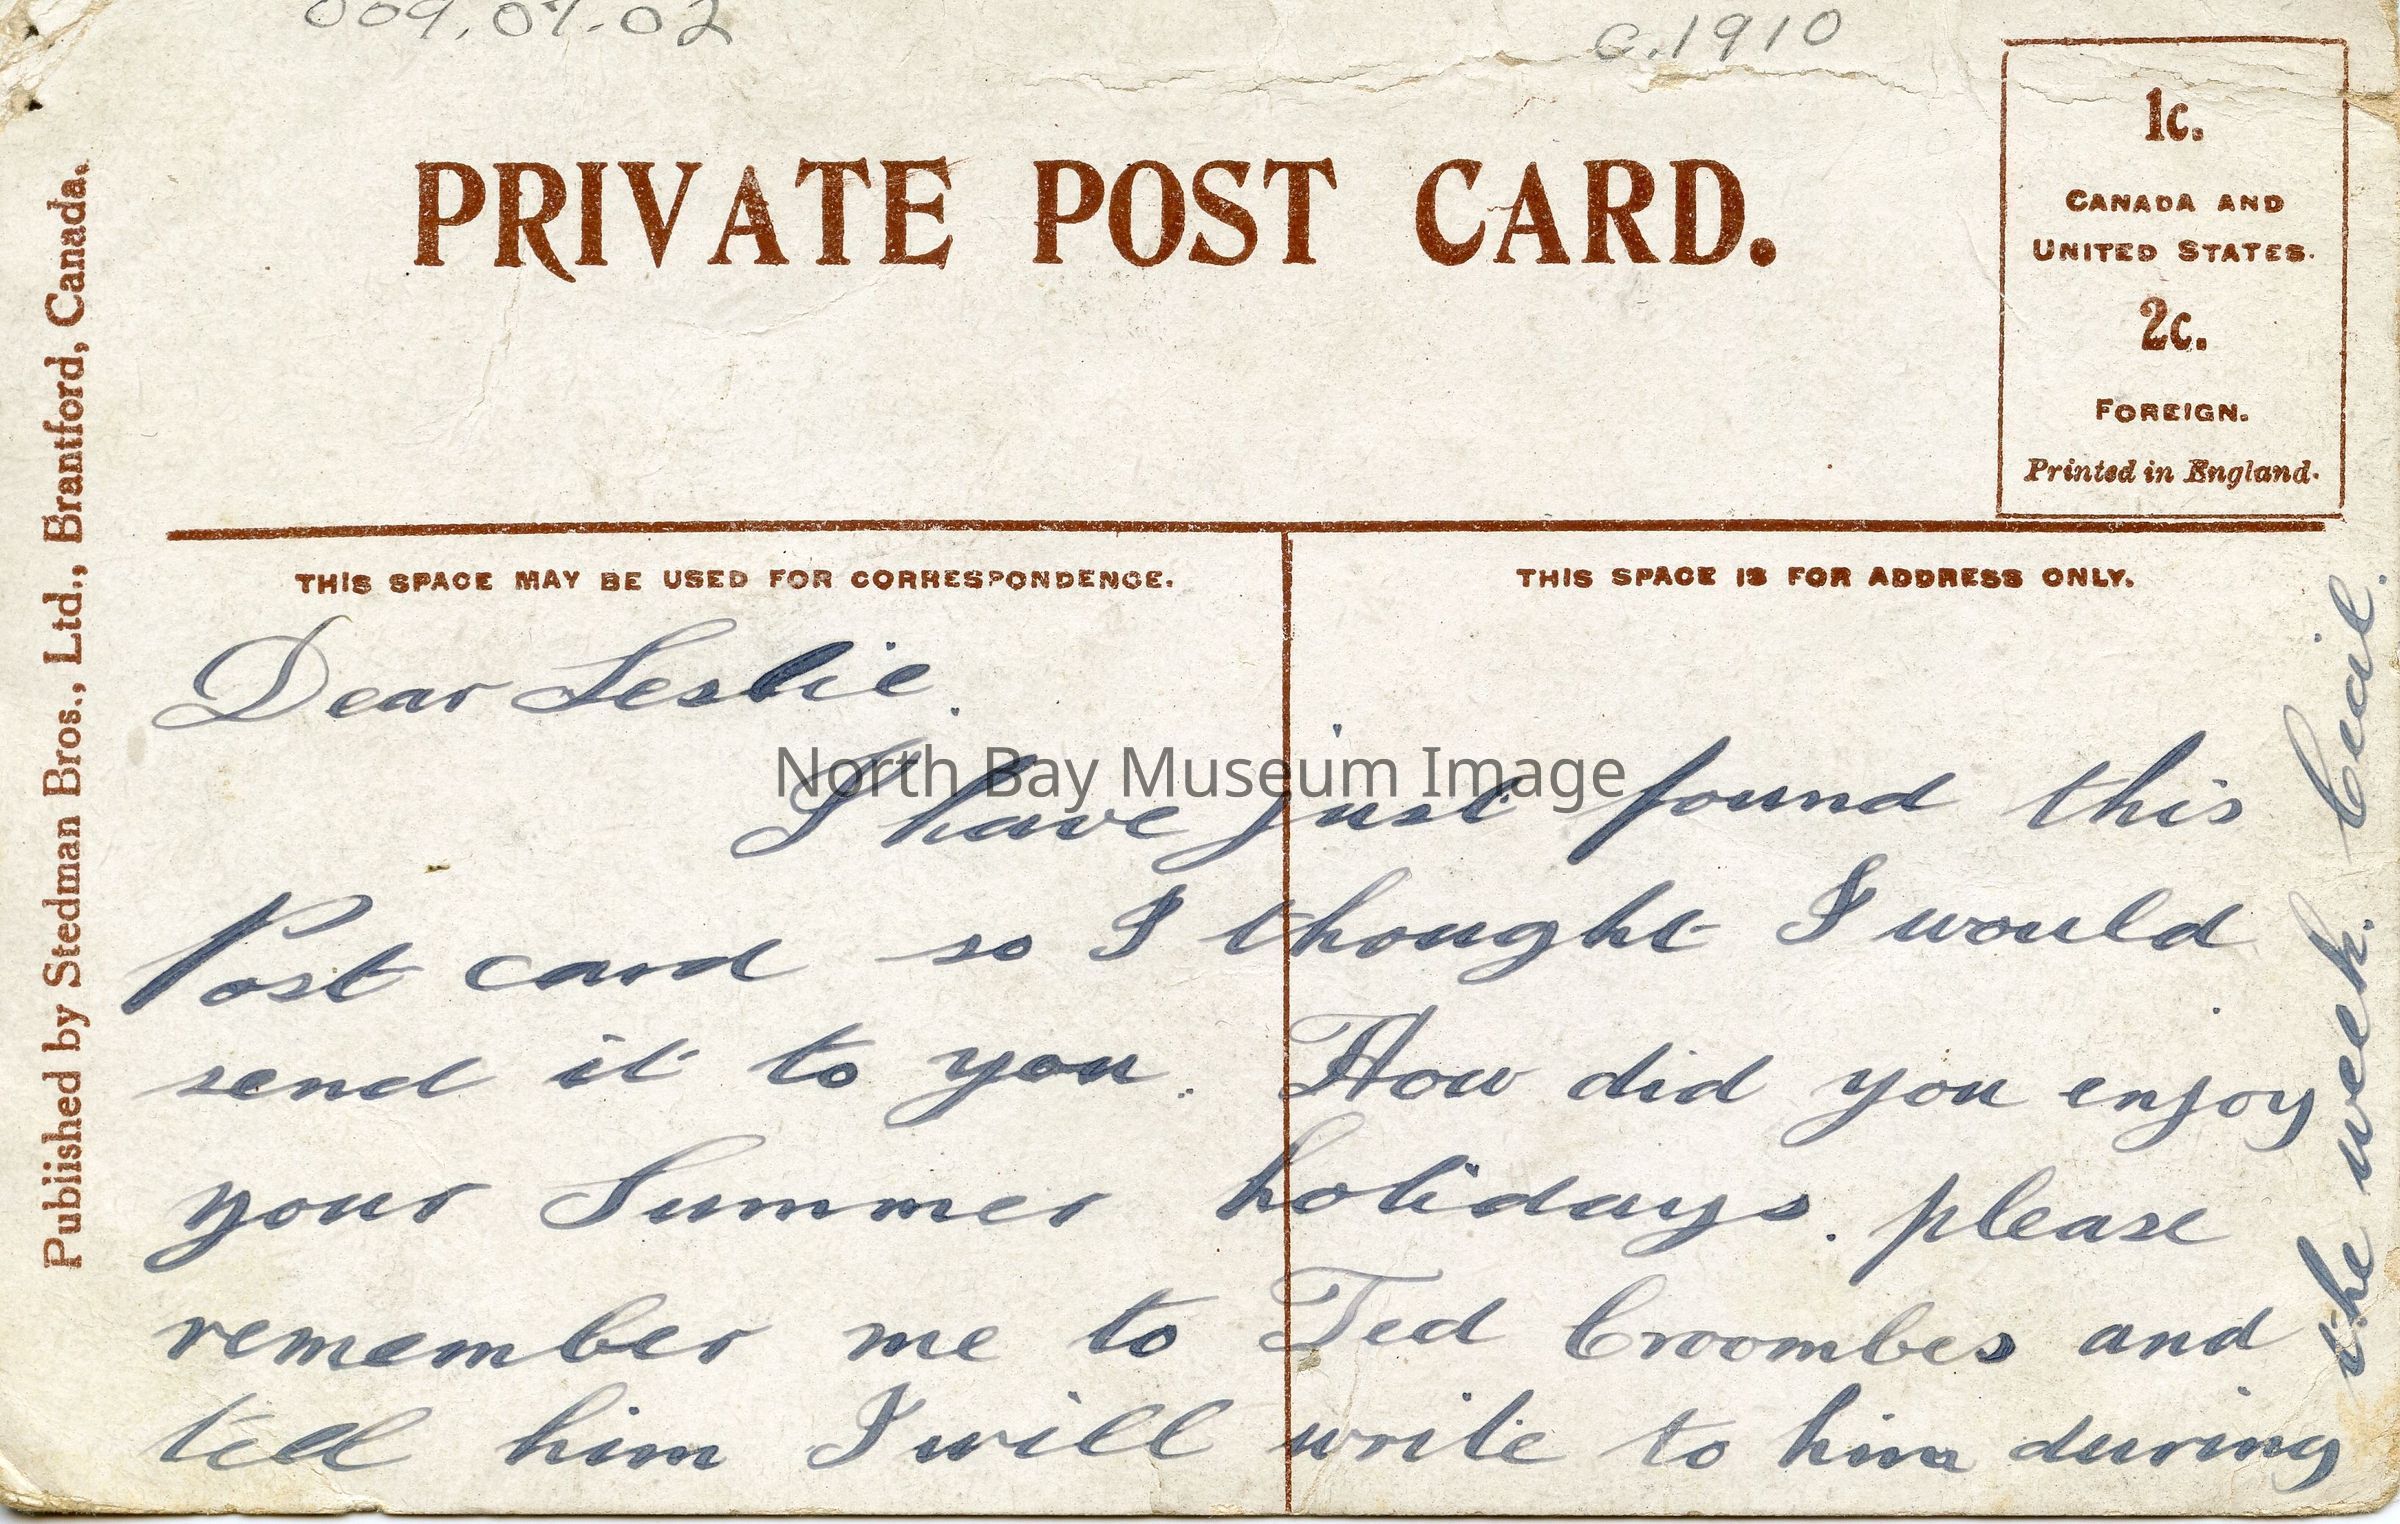 009.07.02
c.1910
PRIVATE POST CARD.
1c.
CANADA AND
UNITED STATES.
2c.
FOREIGN.
Printed in England.
Published by Stedman Bros., Ltd., Brantford, Canada.
THIS SPACE MAY BE USED FOR CORRESPONDENCE.
THIS SPACE IS FOR ADDRESS ONLY.
Dear Leslie.
I have just found this
Post card so I thought I would
send it to you. How did you enjoy
your Summer holidays. please
remember me to Ted Croombes and
tell him I will write to him during
the week. Cecil.
North Bay Museum Image